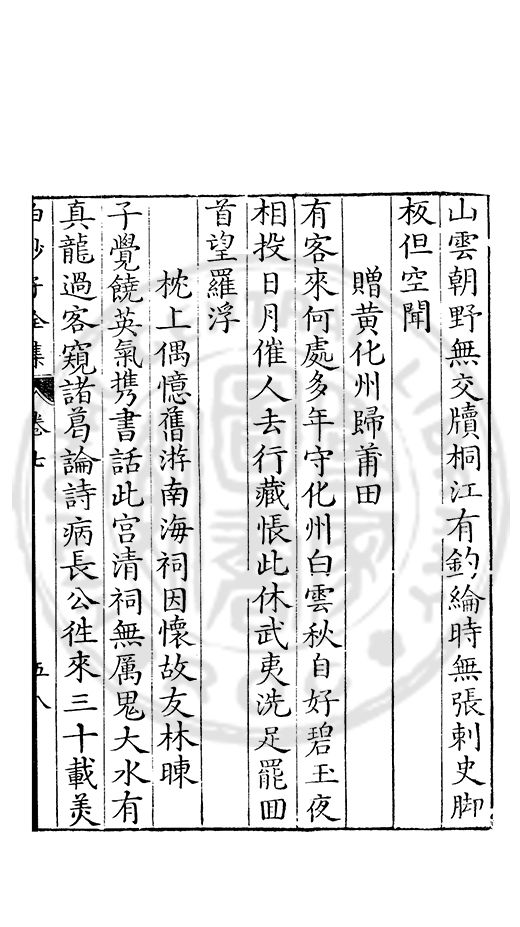 山雲朝野無交牘桐江有釣綸時無張刺史脚
板但空聞
贈黄化州歸莆田
有客來何處多年守化州白雲秋自好碧玉夜
相投日月催人去行藏悵此休武夷洗足罷囬
首望羅浮
枕上偶憶舊游南海祠因懷故友林暕
子覺饒英氣携書話此宫清祠無厲鬼大水有
真龍過客窺諸葛論詩病長公徃來三十載羙
白沙子全集 卷七 五八